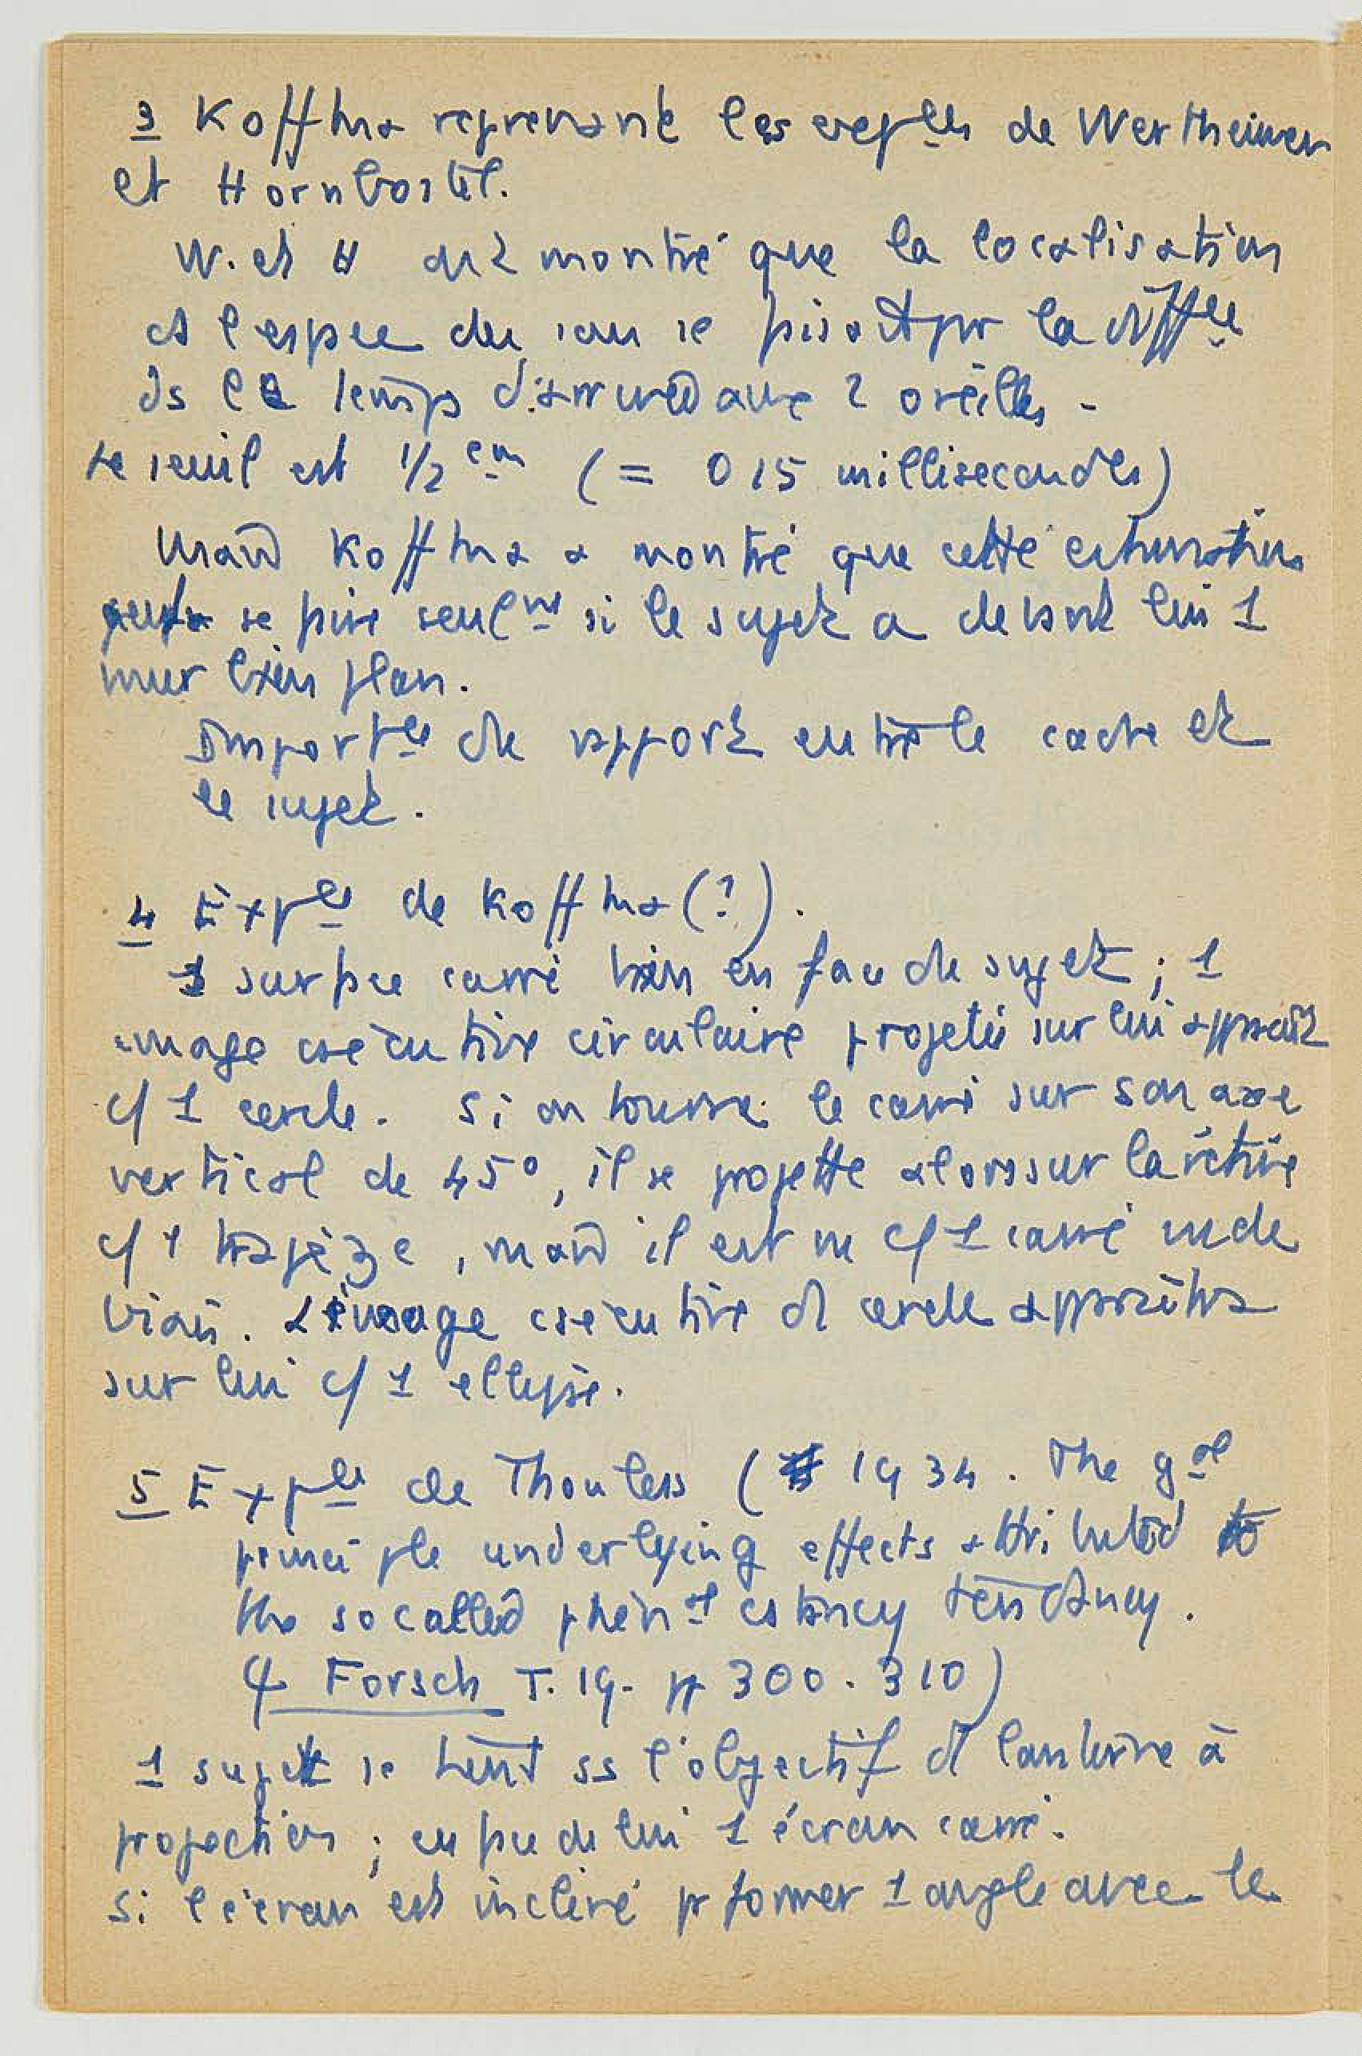 3 Koffka reprenant les exp<sup>ces</sup> de Wertheimer
et Hornbostel.
W. et H ont montré que la localisation
ds l'espace du son se faisait par la diff<sup>ce</sup>
ds le temps d'arrivée aux 2 oreilles -
Le seuil est 1/2 cm (= 0 15 millisecondes)
Mais Koffka a montré que cette estimation
se fait seul<sup>nt</sup> si le sujet a devant lui 1
mur bien plan.
Import<sup>ce</sup> du rapport entre le cadre et
le sujet.
4 Exp<sup>ce</sup> de Koffka (?).
1 surface carré bien en face du sujet ; 1
image csécutive circulaire projetée sur lui apparaît
c/ 1 cercle. Si on tourne le carré sur son axe
vertical de 45°, il se projette alors sur la rétine
c/ 1 trapèze, mais il est vu c/ 1 carré vu de
biais. L'image csécutive d cercle apparaîtra
sur lui c/ 1 ellipse.
5 Exp<sup>ce</sup> de Thouless ( 1934. The g<sup>al</sup>
principle underlying effects attributed to
the so called phén<sup>al</sup> cstancy tendency.
ψ Forsch T. 19. pp 300. 310)
1 sujet se tient ss l'objectif d lanterne à
projection ; en face de lui 1 écran carré.
Si l'écran est incliné pr former 1 angle avec le